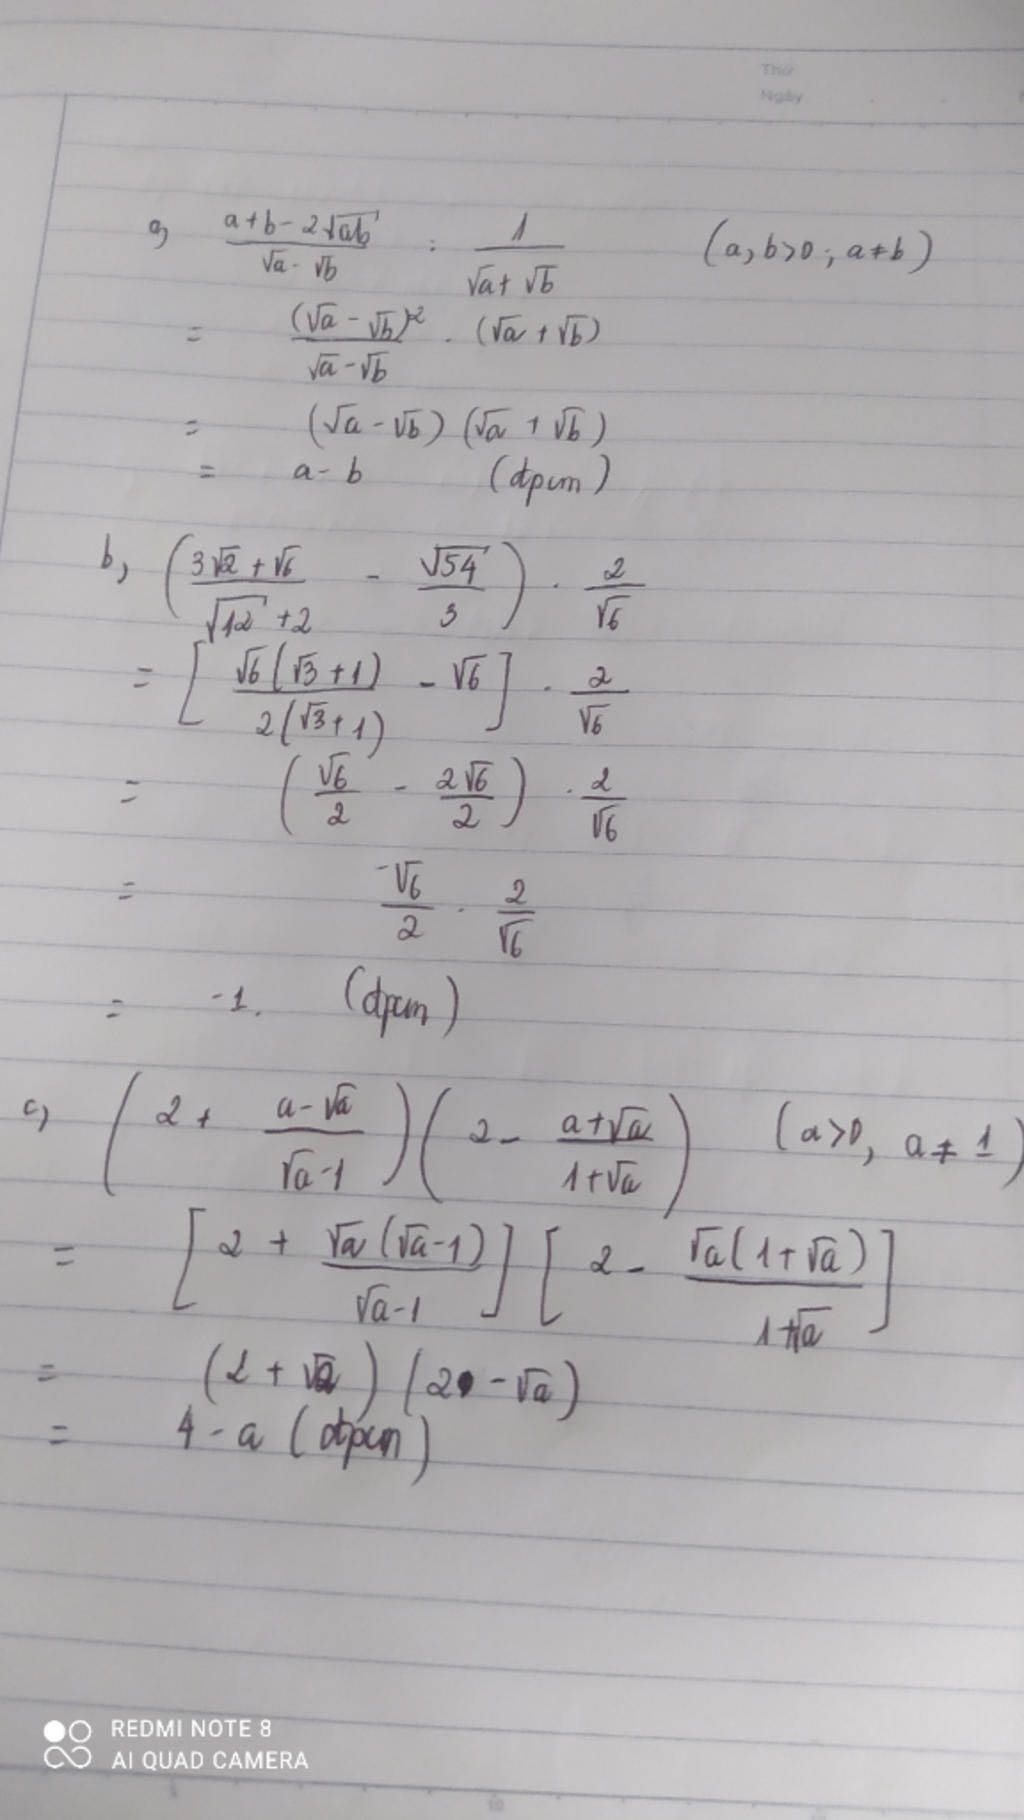 Thứ
Ngày
a, (a+b-2√ab)/(√a-√b) : 1/(√a+√b) (a,b>0; a≠b)
= (√a-√b)²/(√a-√b) . (√a+√b)
= (√a-√b)(√a+√b)
= a-b (đpcm)
b, ((3√2+√6)/(√12+2) - √54/3) . 2/√6
= [√6(√3+1)/2(√3+1) - √6] . 2/√6
= (√6/2 - 2√6/2) . 2/√6
= -√6/2 . 2/√6
= -1. (đpcm)
c, (2 + (a-√a)/(√a-1))(2 - (a+√a)/(1+√a)) (a>0, a≠1)
= [2 + √a(√a-1)/(√a-1)][2 - √a(1+√a)/(1+√a)]
= (2+√a)(2-√a)
= 4-a (đpcm)
REDMI NOTE 8
AI QUAD CAMERA